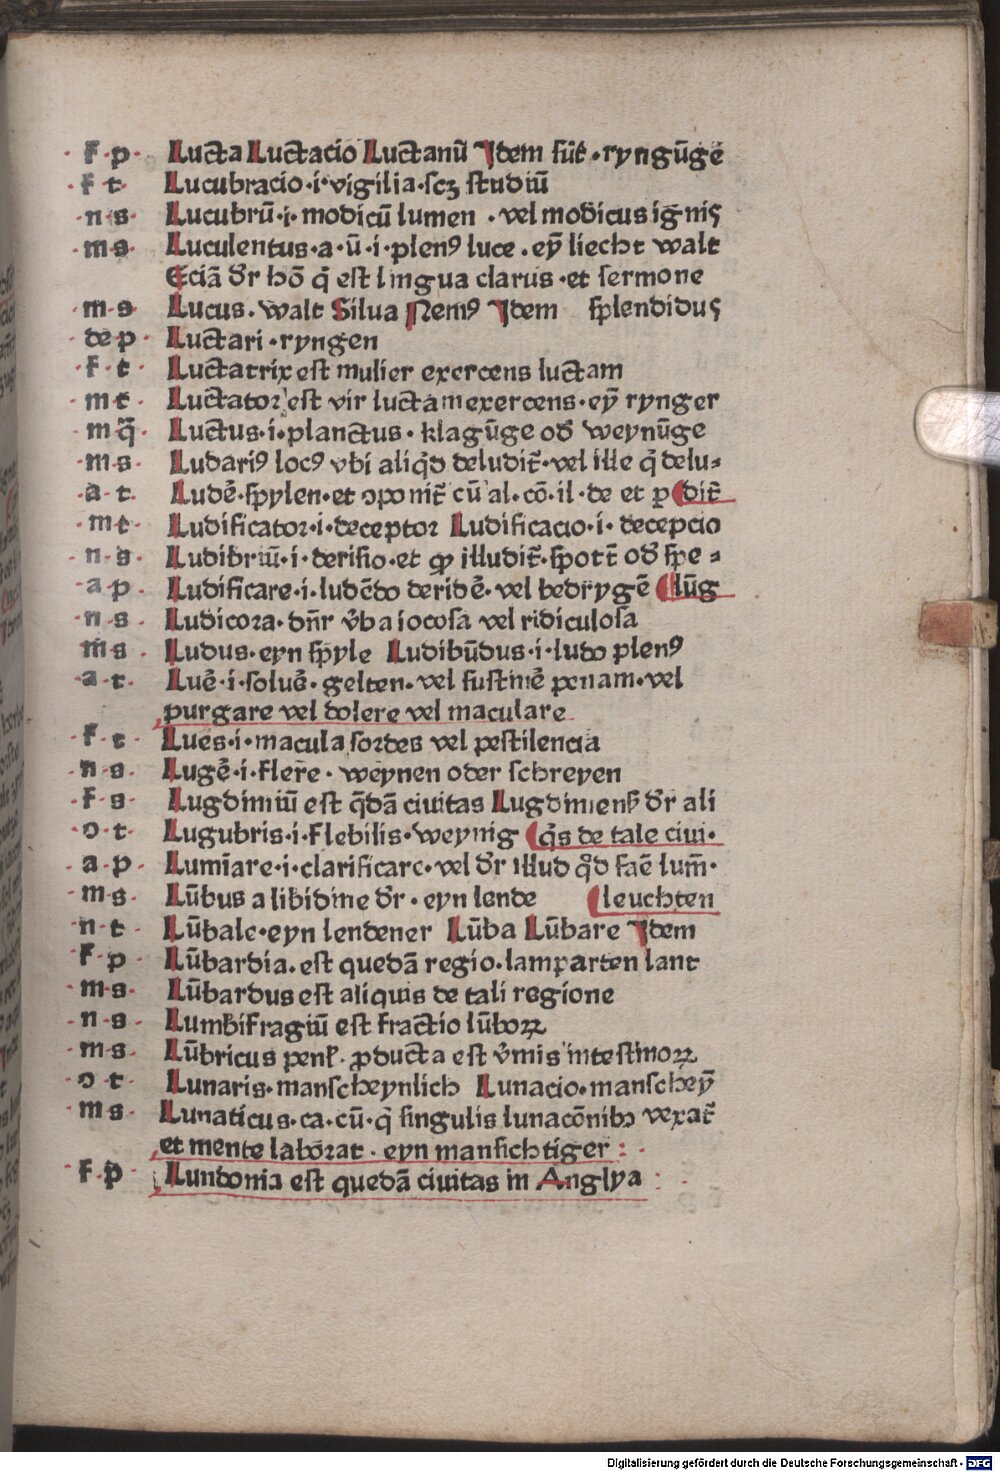 f p Lucta Luctacio Luctanū Idem sūt · ryngūge
f t Lucubracio · i · vigilia · scꝫ studiū
n s Lucubrū · i · modicū lumen · vel modicus ignis
m s Luculentus · a · ū · i · plenꝰ luce · eyn̄ liecht walt
Eciā dr̄ hō q̄ est lingua clarus · et sermone
m s Lucus · walt Silua Nemꝰ Idem splendidus
de p Luctari · ryngen
f t Luctatrix est mulier exercens luctam
m t Luctator est vir luctam exercens · eȳ rynger
m q̄ Luctus · i · planctus · klagūge od̄ weynūge
m s Ludariꝰ locꝰ vbi aliq̄d deludit̄ · vel ille q̄ delu⸗
a t Ludē · spylen · et ɔponit̄ cū al · cō · il · de et p dit̄
m t Ludificator · i · deceptor Ludificacio · i · decepcio
n s Ludibriū · i · derisio · et ꝓ illudit̄ · spott̄ od̄ spe⸗
a p Ludificare · i · ludēdo deridē · vel bedrygē lūg
n s Ludicora · dn̄r v̄ba iocosa vel ridiculosa
m s Ludus · eyn spyle Ludibūdus · i · ludo plenꝰ
a t Luē · i · soluē · gelten · vel sustinē penam · vel
purgare vel dolere vel maculare
f t Lues · i · macula sordes vel pestilencia
n s Lugē · i · flere · weynen oder schreyen
f s Lugdiniū est q̄dā ciuitas Lugdiniens̄ dr̄ ali
ɔ t Lugubris · i · flebilis · weynig q̄s de tale ciui ·
a p Lumīare · i · clarificare · vel dr̄ illud q̄d facē lum̄ ·
m s Lūbus a libidine dr̄ · eyn lende leuchten
n t Lūbale · eyn lendener Lūba Lūbare Idem
f p Lūbardia · est quedā regio · lamparten lant
m s Lūbardus est aliquis de tali regione
n s Lumbifragiū est fractio lūboꝝ
m s Lūbricus penl̄ · ꝓducta est v̄mis intestinoꝝ
ɔ t Lunaris · manscheynlich Lunacio · manscheȳ
m s Lunaticus · ca · cū · q̄ singulis lunacōnibꝫ vexat̄
et mente laborat · eyn mansichtiger :
f p Lundonia est quedā ciuitas in Anglya
Digitalisierung gefördert durch die Deutsche Forschungsgemeinschaft - DFG